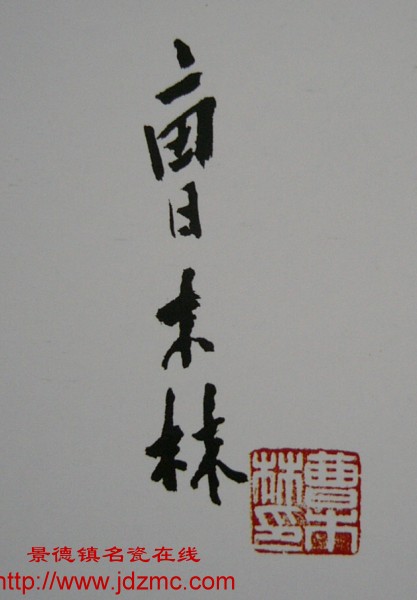 曹木林
曹木
林印
景德镇名瓷在线
http://www.jdzmc.com